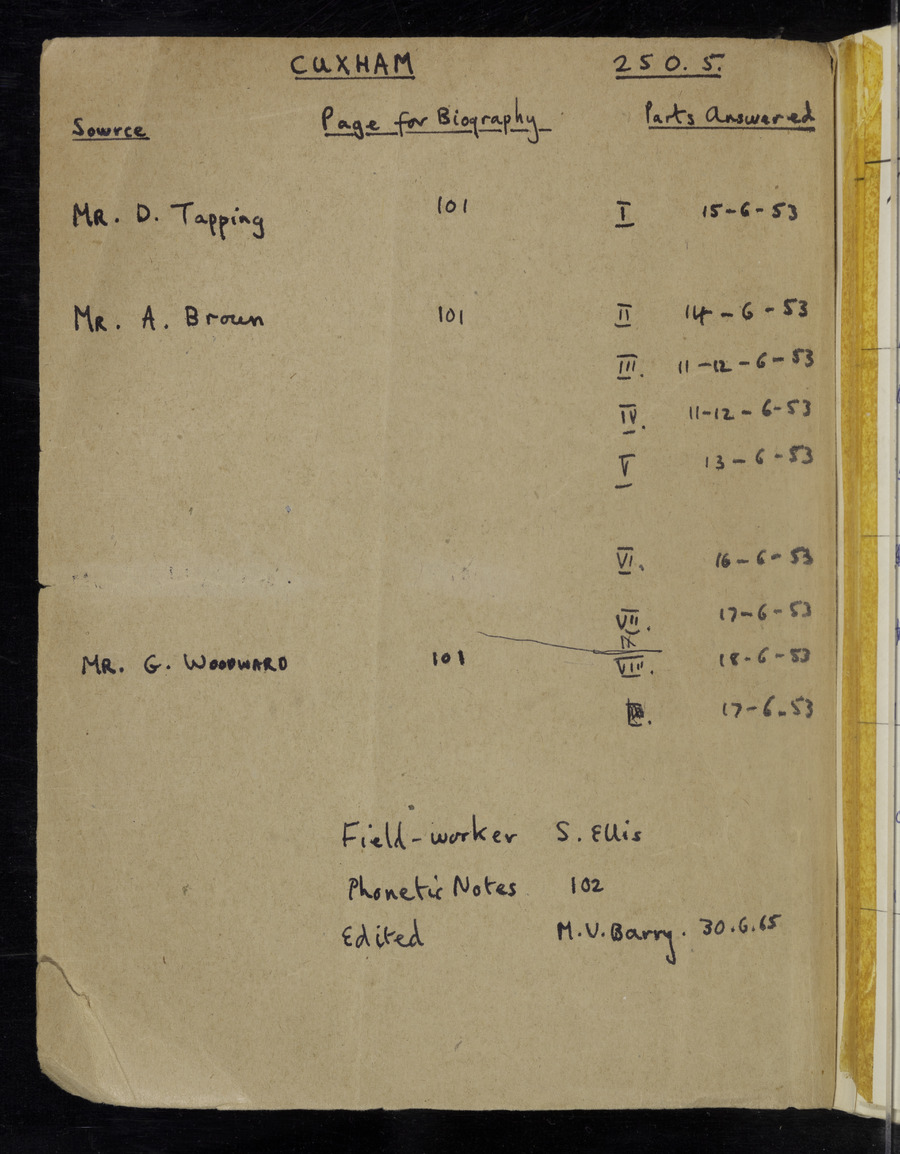 CUXHAM 25 O. 5.
Source Page for Biography Parts Answered
MR. D. Tapping 101 I 15-6-53
MR. A. Brown 101 II 14-6-53
III. 11-12-6-53
IV. 11-12-6-53
V 13-6-53
VI. 16-6-53
VII. 17-6-53
IX
MR. G. WOODWARD 101 VIII. 18-6-53
17-6-53
Field-worker S. Ellis
Phonetic Notes 102
Edited M.V. Barry. 30.6.65